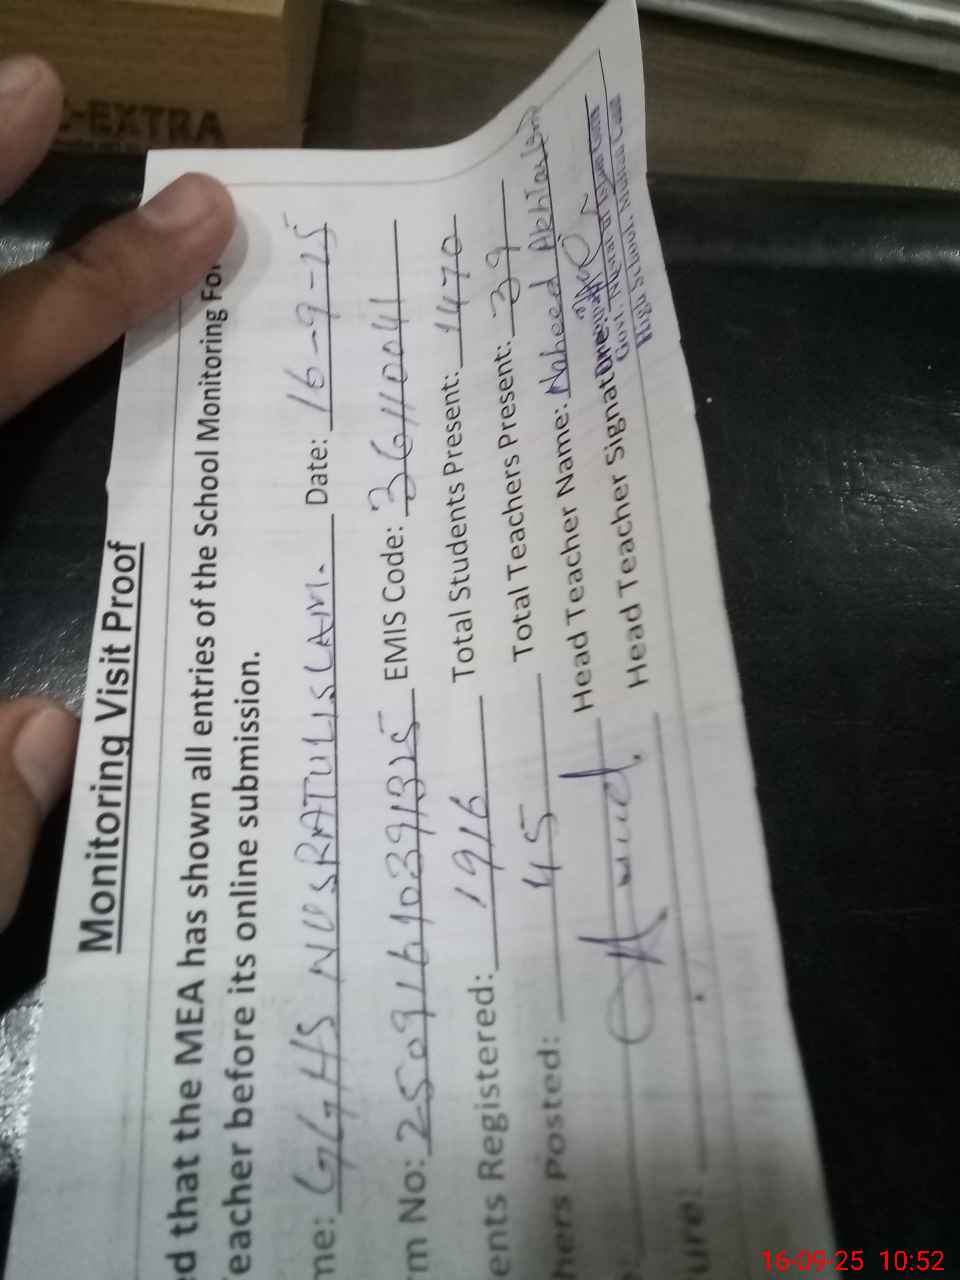 -EXTRA
Monitoring Visit Proof
ed that the MEA has shown all entries of the School Monitoring For
eacher before its online submission.
me: GGHS NUSRATULISLAM. Date: 16-9-25
m No: EMIS Code: 36110041
ents Registered: 1916 Total Students Present: 1470
hers Posted: 45 Total Teachers Present: 39
Head Teacher Name: Naheed Akhtar
ure: Head Teacher Signature:
Govt. Nusrat ul Islam Girls
High School,
16-09-25 10:52